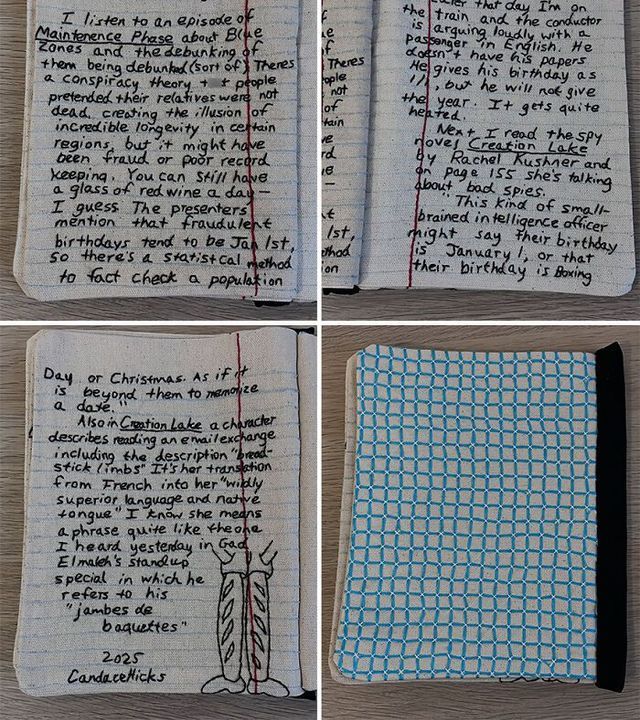 I listen to an episode of
Maintenence Phase about Blue
Zones and the debunking of
them being debunked (sort of) Theres
a conspiracy theory people
pretended their relatives were not
dead, creating the illusion of
incredible longevity in certain
regions, but it might have
been fraud or poor record
keeping. You can still have
a glass of red wine a day—
I guess The presenters
mention that fraudulent
birthdays tend to be Jan 1st,
so there's a statistcal method
to fact check a population
that day I'm on
the train and the conductor
is arguing loudly with a
passenger in English. He
doesn't have his papers
He gives his birthday as
1/1, but he will not give
the year. It gets quite
heated.
Next, I read the spy
novel Creation Lake
by Rachel Kushner and
on page 155 she's talking
about bad spies.
"This kind of small-
brained intelligence officer
might say their birthday
is January 1, or that
their birthday is Boxing
Day or Christmas. As if it
is beyond them to memorize
a date."
Also in Creation Lake a character
describes reading an email exchange
including the description "bread-
stick limbs" It's her translation
from French into her "wildly
superior language and native
tongue" I know she means
a phrase quite like the one
I heard yesterday in Gad
Elmaleh's standup
special in which he
refers to his
"jambes de
baquettes"
2025
Candace Hicks